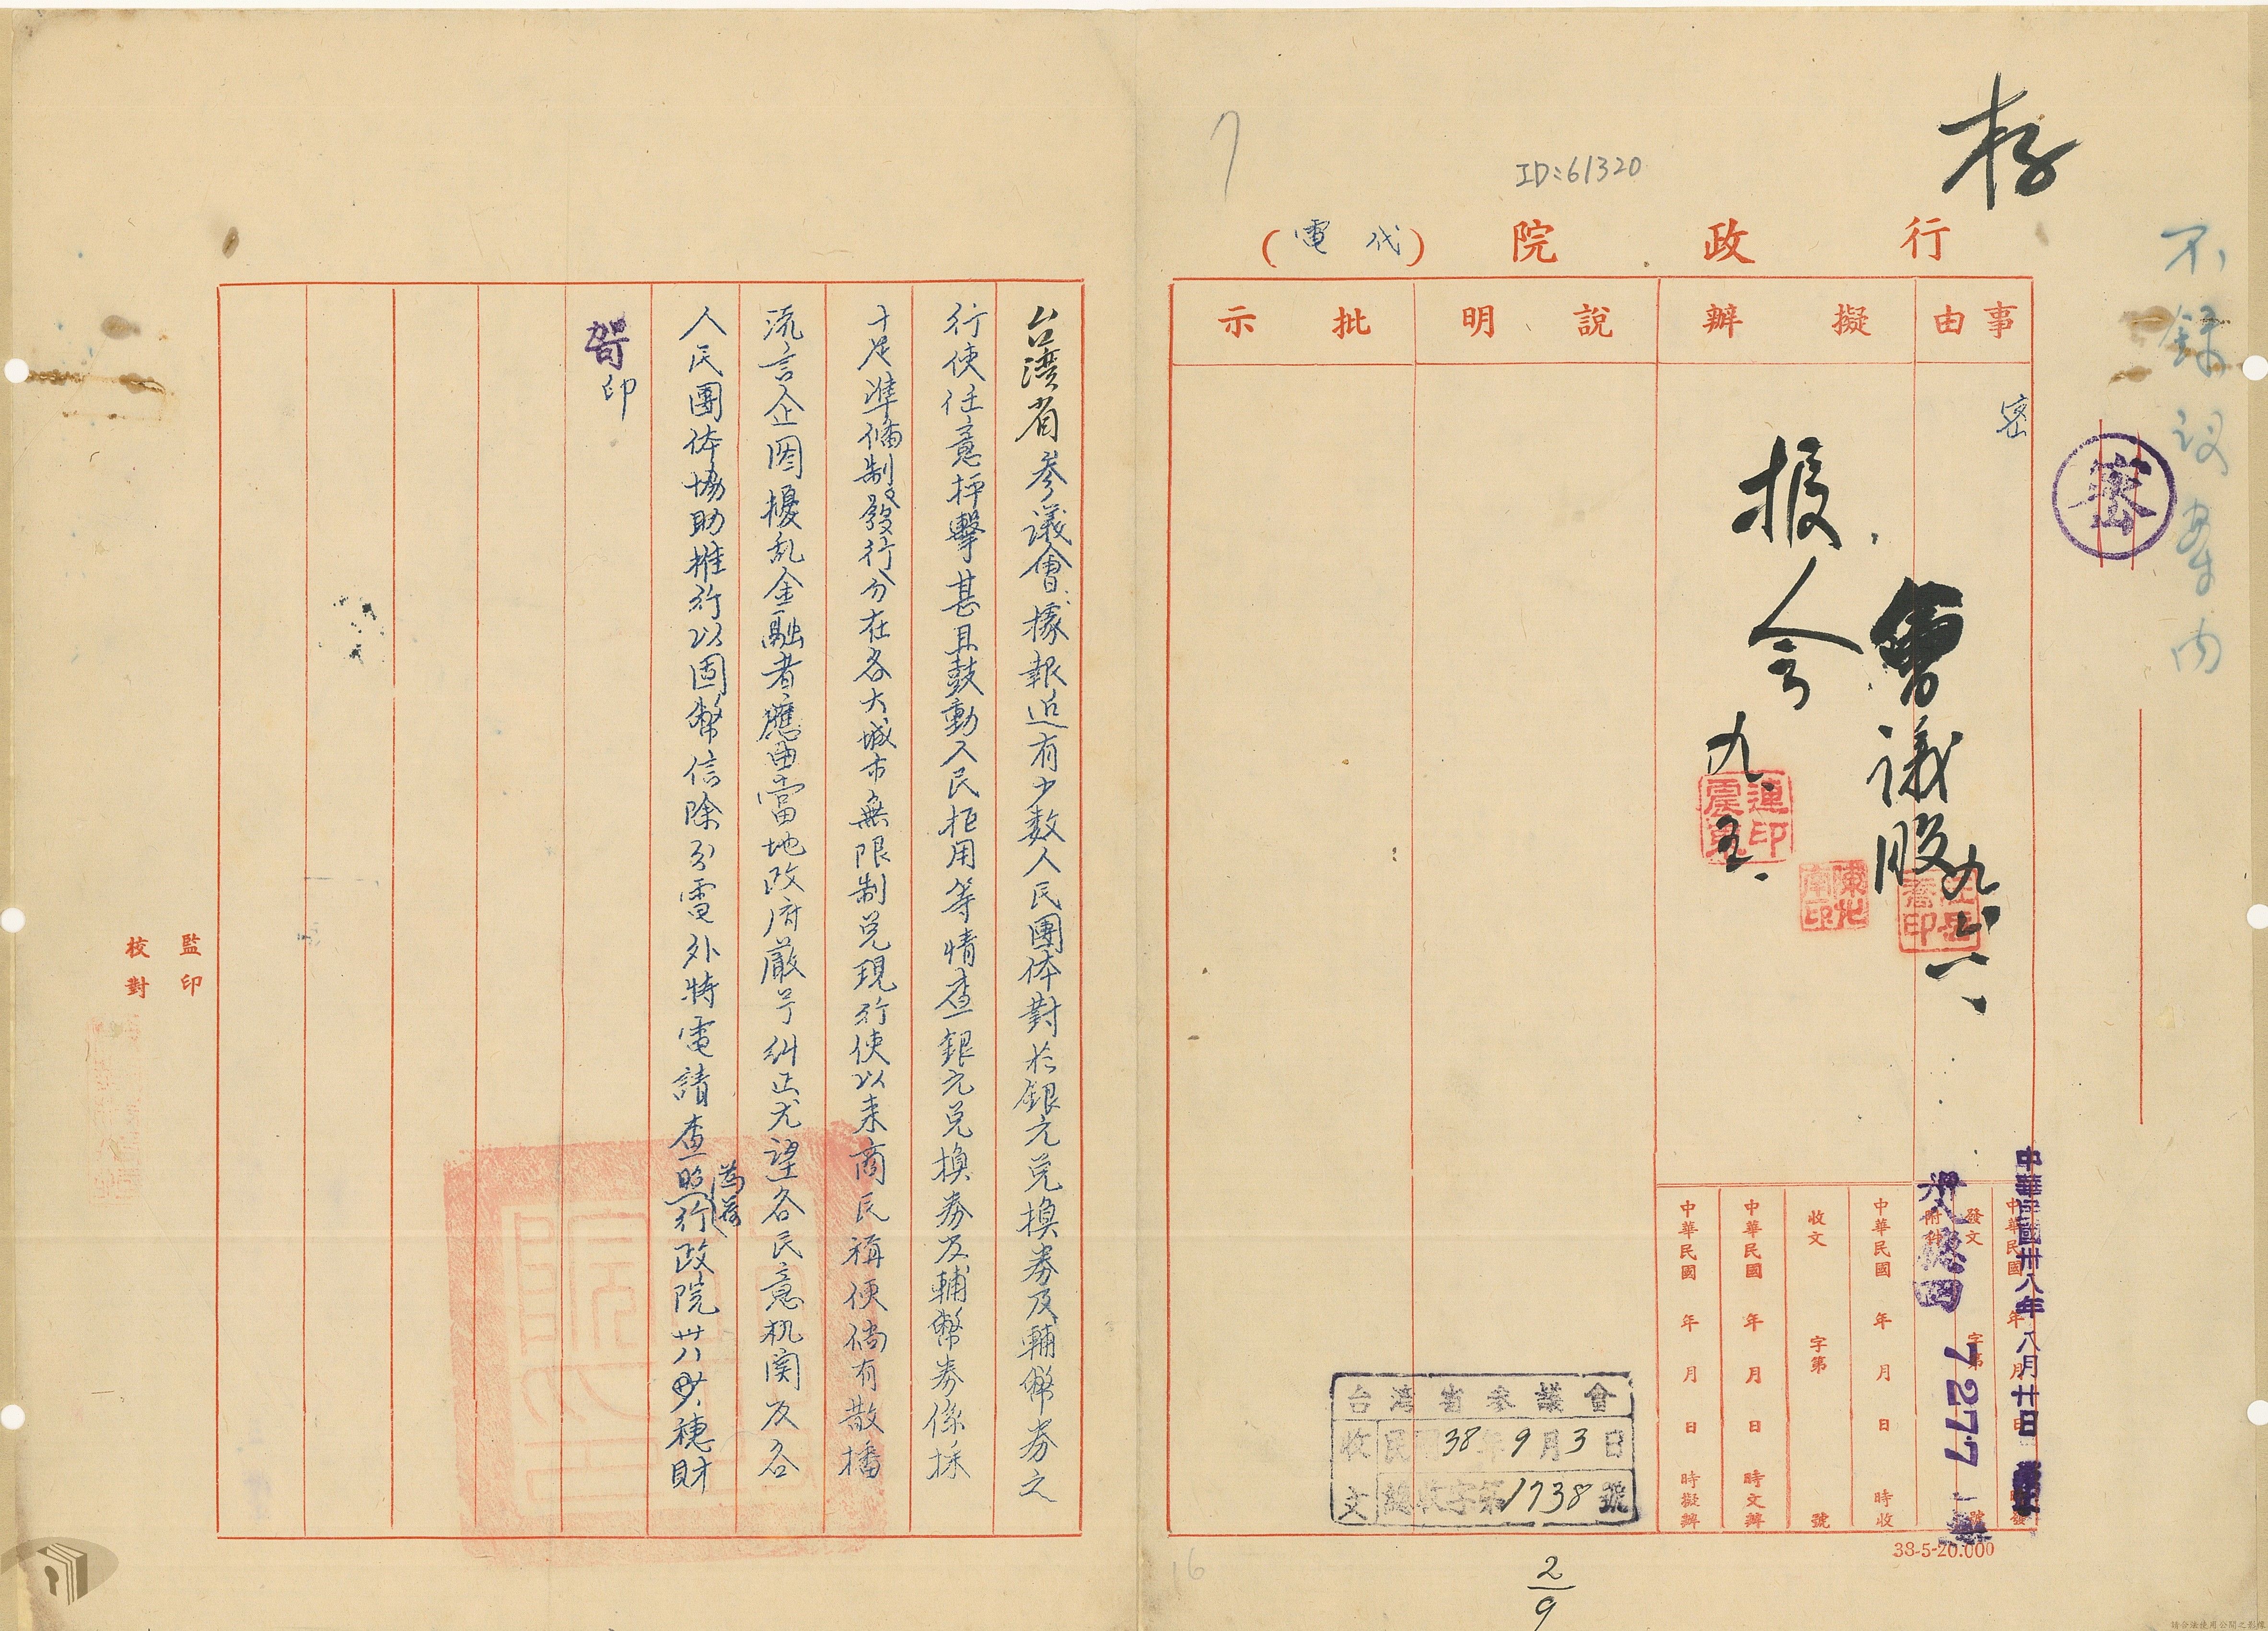 存
ID:61320
行政院（代電）
不錄議案內
事由
擬辦
說明
批示
密
密
會議股 九、六、
報人会 九、五、
連震東印
中華民國卅八年八月廿日
中華民國 年 月 日 時發
發文 字第 號
附件
穗四
7277
中華民國 年 月 日 時收
收文 字第 號
中華民國 年 月 日 時文辦
中華民國 年 月 日 時擬辦
38-5-20.000
台灣省參議會
收文
民國38年9月3日
總收字第1738號
2/9
16
台湾省參議會據報近有少数人民團体對於銀元兑換券及輔幣券之
行使任意抨擊甚且鼓動人民拒用等情查銀元兑換券及輔幣券係採
十足準備制發行分在各大城市無限制兑現行使以来商民稱便倘有散播
流言企圖擾乱金融者應由當地政府嚴予糾正尤望各民意机関及各
人民團体協助推行以固幣信除分電外特電請查照為荷行政院卅八穗財
印
監印
校對